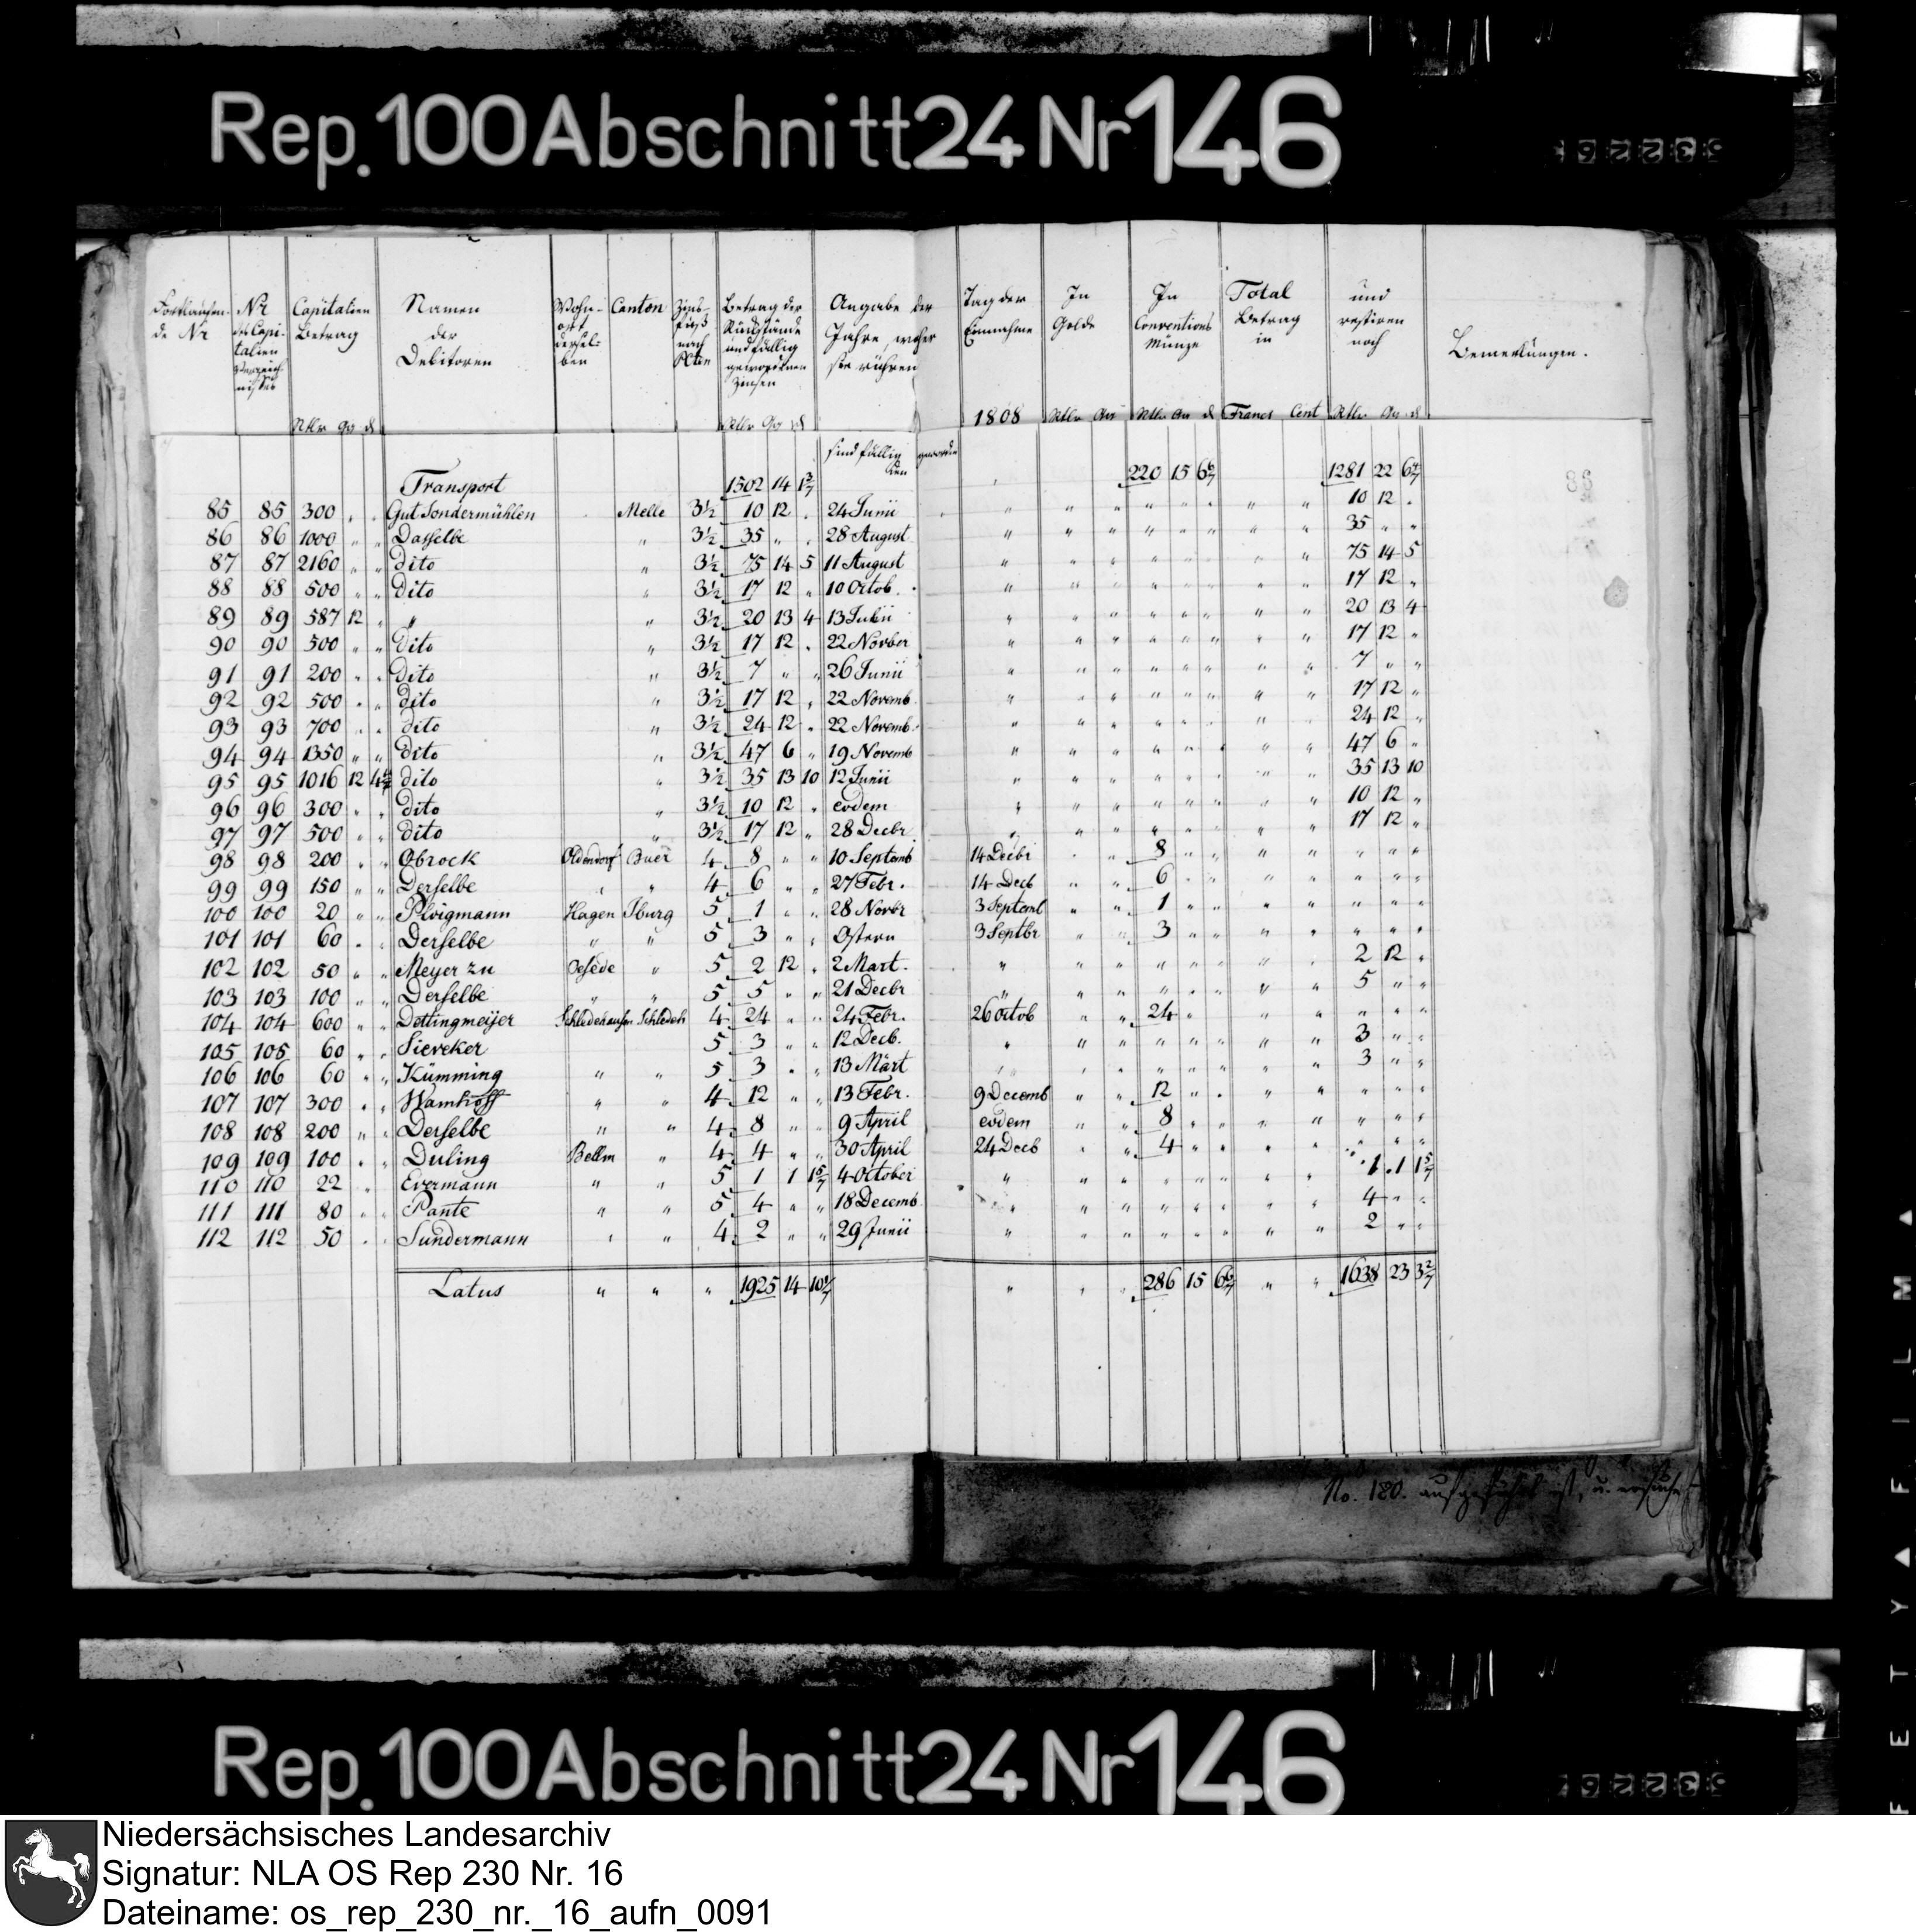 Rep. 100 Abschnitt 24 Nr 146
Fortlaufen- Nr Capitalien Namen Wohn- Canton Zins- Betrag der Angabe der Tag der In In Total und
de Nr des Capi- Betrag der ort fuß Rückstände Jahre, woher Einnahme Golde Conventions Betrag restiren Bemerkungen.
talien Debitoren dersel- nach und fällig sie rühren Münze in noch
Verzeich- ben PCten gewordenen
nisses Zinsen
Rtlr gr d Rtlr Gr d 1808 Rtlr Gr Rtlr Gr d Francs Cent Rtlr Gr d
sind fällig geworden
Transport 1502 14 1 3/7 220 15 6 6/7 1281 22 6 4/7
85 85 300 " " Gut Sondermühlen Melle 3½ 10 12 " 24 Junii " 10 12 "
86 86 1000 " " Dasselbe " 3½ 35 " " 28 August " 35 " "
87 87 2160 " " dito " 3½ 75 14 5 11 August " 75 14 5
88 88 500 " " dito " 3½ 17 12 " 10 Octob. " 17 12 "
89 89 587 12 " " " 3½ 20 13 4 13 Julii " 20 13 4
90 90 500 " " dito " 3½ 17 12 " 22 Novber " 17 12 "
91 91 200 " " dito " 3½ 7 " " 26 Junii " 7 " "
92 92 500 " " dito " 3½ 17 12 " 22 Novemb " 17 12 "
93 93 700 " " dito " 3½ 24 12 " 22 Novemb. " 24 12 "
94 94 1350 " " dito " 3½ 47 6 " 19 Novemb " 47 6 "
95 95 1016 12 dito " 3½ 35 13 10 12 Junii " 35 13 10
96 96 300 " " dito " 3½ 10 12 " eodem " 10 12 "
97 97 500 " " dito " 3½ 17 12 " 28 Decbr " 17 12 "
98 98 200 " " Obrock Oldendorf Buer 4 8 " " 10 Septemb 14 Decbr 8 " "
99 99 150 " " Derselbe " " 4 6 " " 27 Febr. 14 Decb 6 " "
100 100 20 " " Ploigmann Hagen Iburg 5 1 " " 28 Novbr 3 Septemb 1 " "
101 101 60 " " Derselbe " " 5 3 " " Ostern 3 Septbr 3 " "
102 102 50 " " Meyer zu Oesede " 5 2 12 " 2 Mart. " 2 12 "
103 103 100 " " Derselbe " " 5 5 " " 21 Decbr " 5 " "
104 104 600 " " Dettingmeijer Schledehausen Schledeh 4 24 " " 24 Febr. 26 Octob 24 " "
105 105 60 " " Sieveker 5 3 " " 12 Decb. " 3 " "
106 106 60 " " Kümming " " 5 3 " " 13 Märt " 3 " "
107 107 300 " " Wamhoff " " 4 12 " " 13 Febr. 9 Decemb 12 " "
108 108 200 " " Derselbe " " 4 8 " " 9 April eodem 8 " "
109 109 100 " " Duling Bellm " 4 4 " " 30 April 24 Decb 4 " "
110 110 22 " Evermann " " 5 1 1 1 5/7 4 October " 1 1 1 5/7
111 111 80 " " Pante " " 5 4 " " 18 Decemb " 4 " "
112 112 50 " " Sundermann " " 4 2 " " 29 Junii " 2 " "
Latus " " " 1925 14 10 1/7 " 286 15 6 6/7 " " 1638 23 3 2/7
No. 120. aufgeführt ist, u.
Rep. 100 Abschnitt 24 Nr 146
Niedersächsisches Landesarchiv
Signatur: NLA OS Rep 230 Nr. 16
Dateiname: os_rep_230_nr._16_aufn_0091